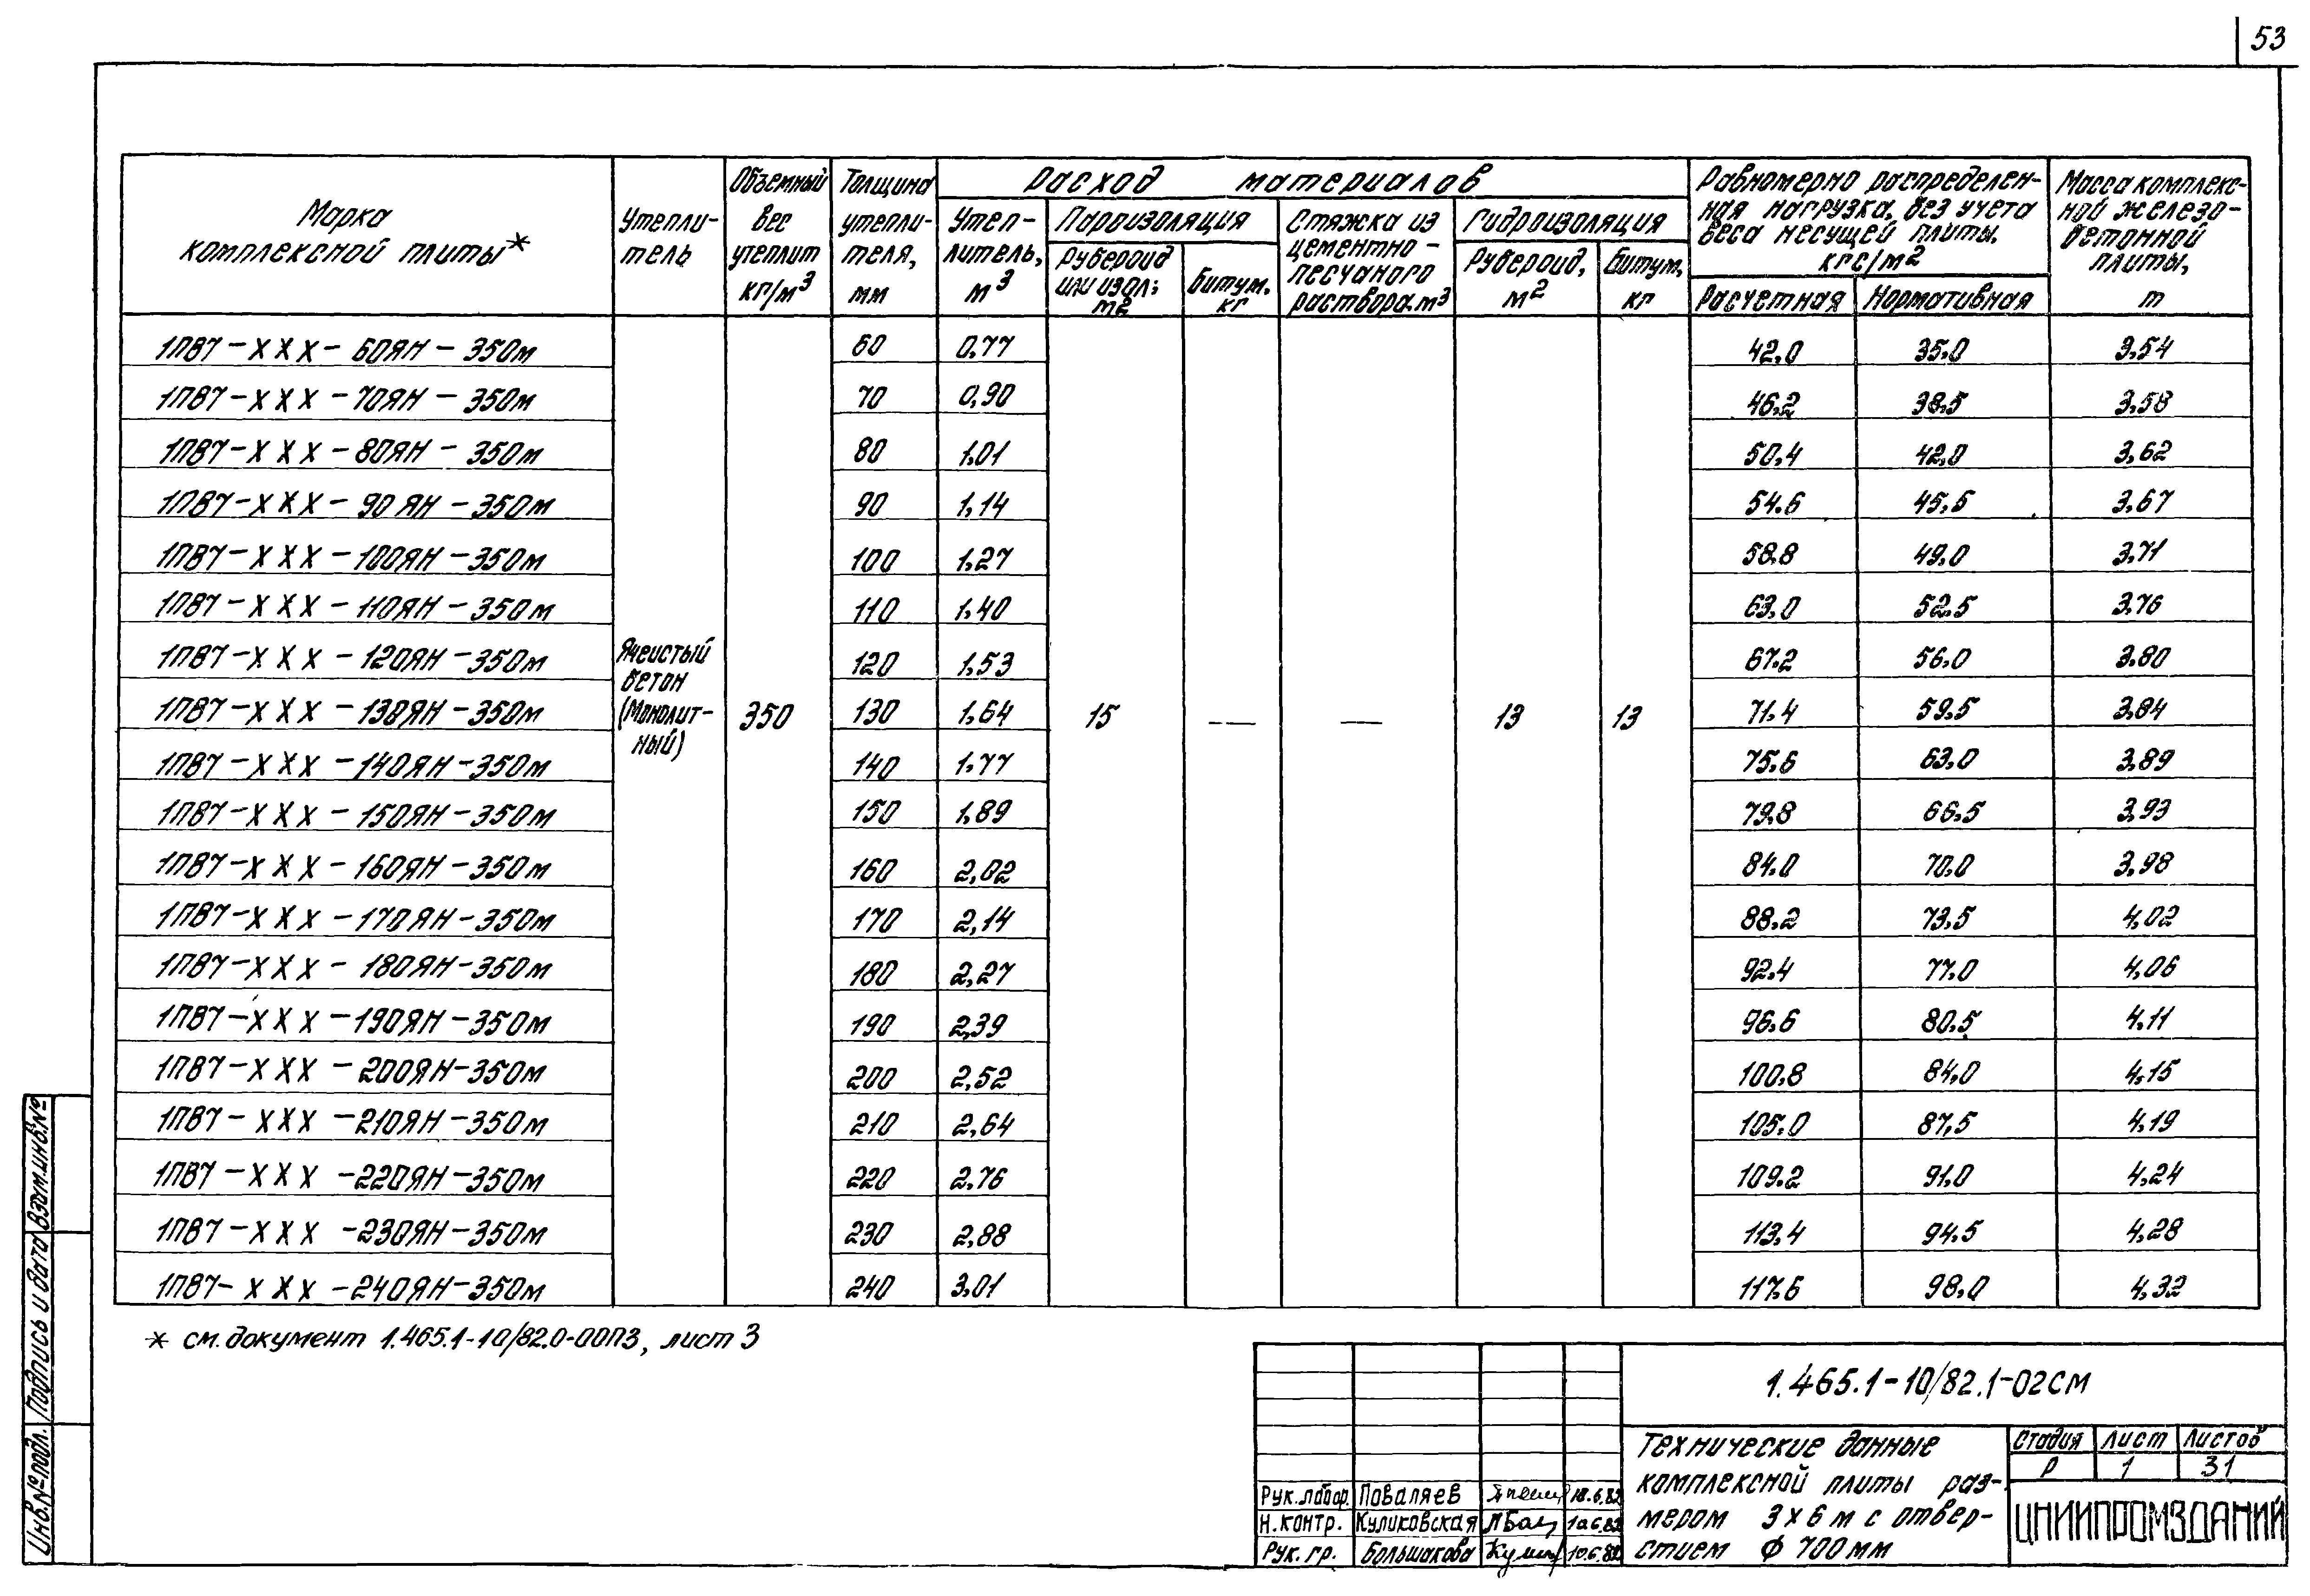 53
Марка комплексной плиты*
Утепли-
тель
Объемный вес утеплит кг/м³
Толщина утепли-
теля, мм
Расход материалов
Утеп-
литель, м³
Пароизоляция
Рубероид или изол; м²
Битум, кг
Стяжка из цементно-
песчаного раствора. м³
Гидроизоляция
Рубероид, м²
Битум, кг
Равномерно распределен-
ная нагрузка, без учета
веса несущей плиты,
кгс/м²
Расчетная
Нормативная
Масса комплекс-
ной железо-
бетонной
плиты,
т
1ПВ7-XXX-60ЯН-350м 60 0,77 42,0 35,0 3,54
1ПВ7-XXX-70ЯН-350м 70 0,90 46,2 38,5 3,58
1ПВ7-XXX-80ЯН-350м 80 1,01 50,4 42,0 3,62
1ПВ7-XXX-90ЯН-350м 90 1,14 54,6 45,5 3,67
1ПВ7-XXX-100ЯН-350м 100 1,27 58,8 49,0 3,71
1ПВ7-XXX-110ЯН-350м 110 1,40 63,0 52,5 3,76
1ПВ7-XXX-120ЯН-350м 120 1,53 67,2 56,0 3,80
1ПВ7-XXX-130ЯН-350м 130 1,64 71,4 59,5 3,84
Ячеистый
бетон
(Монолит-
ный)
350 15 — — 13 13
1ПВ7-XXX-140ЯН-350м 140 1,77 75,6 63,0 3,89
1ПВ7-XXX-150ЯН-350м 150 1,89 79,8 66,5 3,93
1ПВ7-XXX-160ЯН-350м 160 2,02 84,0 70,0 3,98
1ПВ7-XXX-170ЯН-350м 170 2,14 88,2 73,5 4,02
1ПВ7-XXX-180ЯН-350м 180 2,27 92,4 77,0 4,06
1ПВ7-XXX-190ЯН-350м 190 2,39 96,6 80,5 4,11
1ПВ7-XXX-200ЯН-350м 200 2,52 100,8 84,0 4,15
1ПВ7-XXX-210ЯН-350м 210 2,64 105,0 87,5 4,19
1ПВ7-XXX-220ЯН-350м 220 2,76 109,2 91,0 4,24
1ПВ7-XXX-230ЯН-350м 230 2,88 113,4 94,5 4,28
1ПВ7-XXX-240ЯН-350м 240 3,01 117,6 98,0 4,32
* см. документ 1.465.1-10/82.0-00ПЗ, лист 3
1.465.1-10/82.1-02СМ
Технические данные
комплексной плиты раз-
мером 3х6 м с отвер-
стием ф 700 мм
Стадия Лист Листов
Р 1 31
ЦНИИПРОМЗДАНИЙ
Рук.лабор. Поваляев 18.6.82
Н.контр. Куликовская 10.6.82
Рук. гр. Большакова 10.6.82
Инв.№ подл. Подпись и дата Взам.инв.№